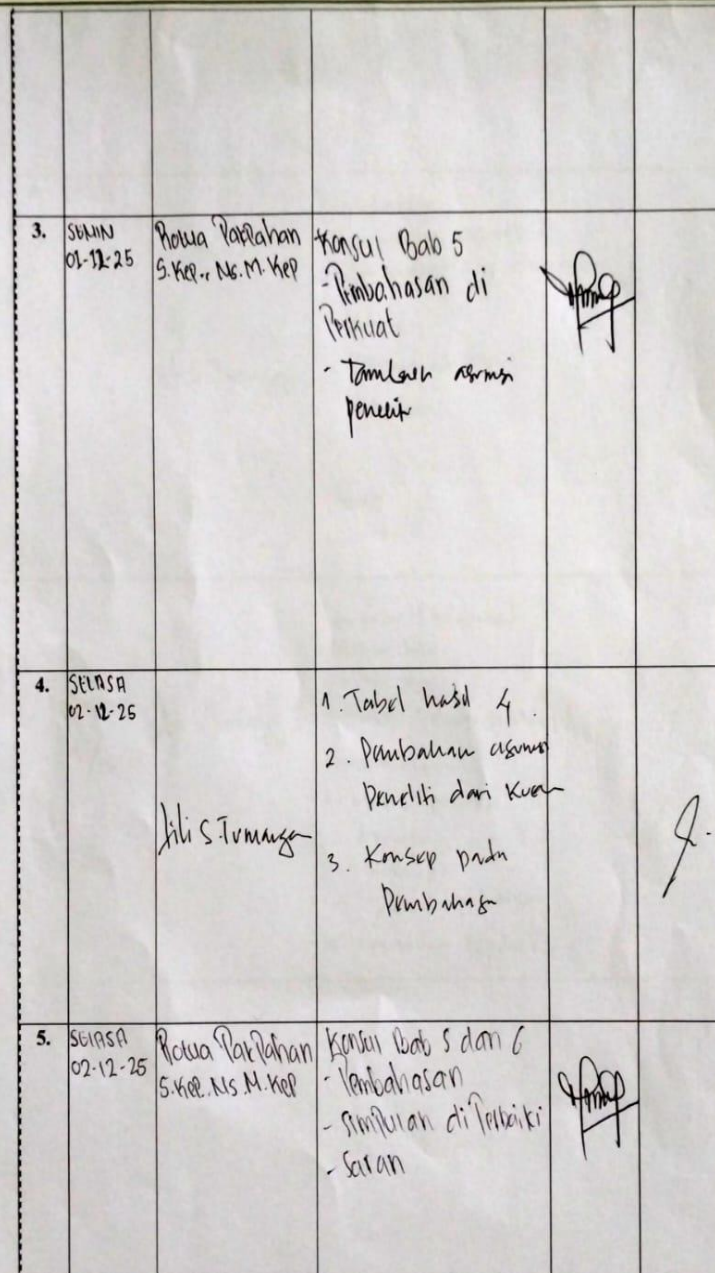 3.
SENIN
01-12-25
Rotua Pakpahan
S.Kep., Ns. M. Kep
Konsul Bab 5
- Pembahasan di
Perkuat
- Tambah asumsi
peneliti
4.
SELASA
02-12-25
Lili S. Tumangger
1. Tabel hasil 4.
2. Pembahasan asumsi
Peneliti dari
3. Konsep pada
Pembahasan
5.
SELASA
02-12-25
Rotua Pakpahan
S.Kep. Ns. M. Kep
Konsul Bab 5 dan 6
- Pembahasan
- Simpulan di Perbaiki
- Saran